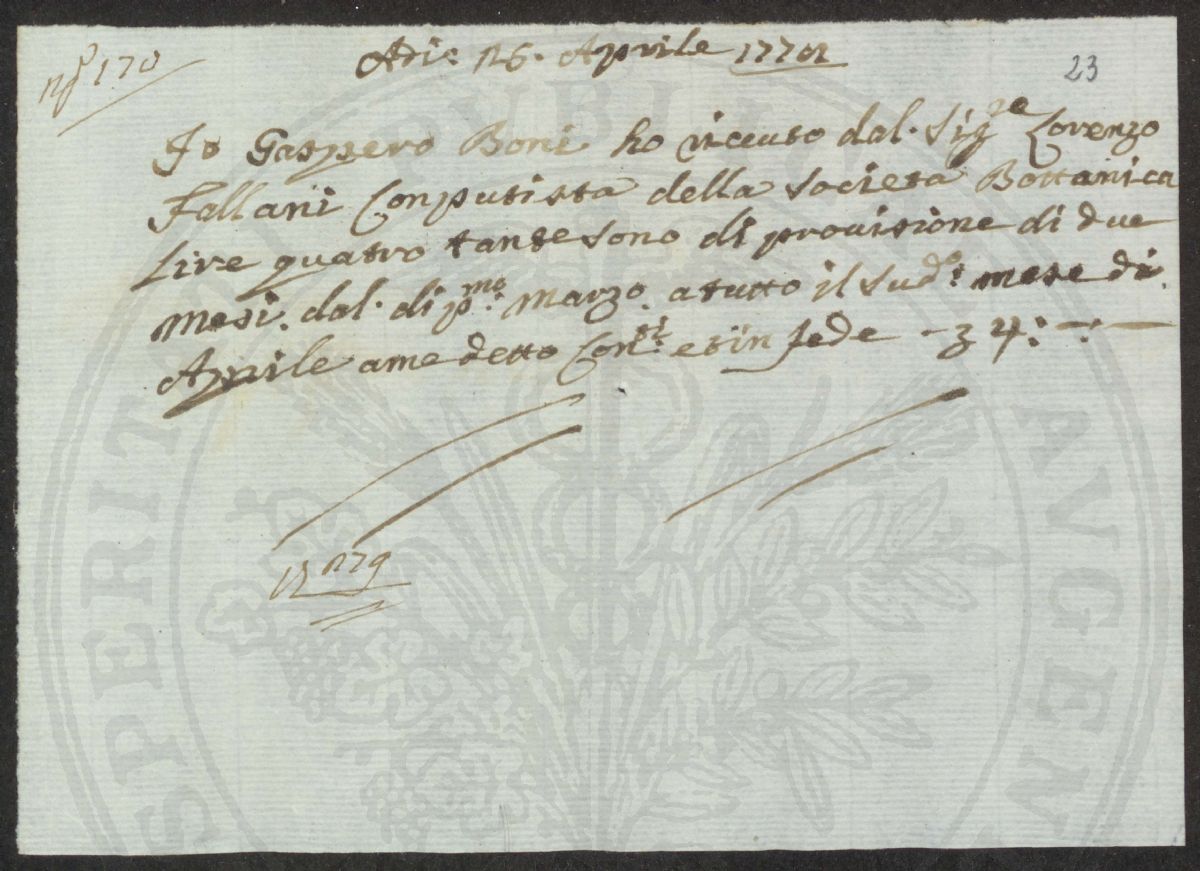 N° 170
Adi: 26. Aprile 1772
23
Io Gaspero Boni ho riceuto dal. Sig.re Lorenzo
Fallani Conputista della Societa Bottanica
Lire quatro tante sono di prouisione di due
Mesi. dal. di p.mo Marzo. a tutto il Sud.o mese di
Aprile a me detto Con.ti et in fede — 4: —:—
179
PVBLICA
SPERITA
AVGEN